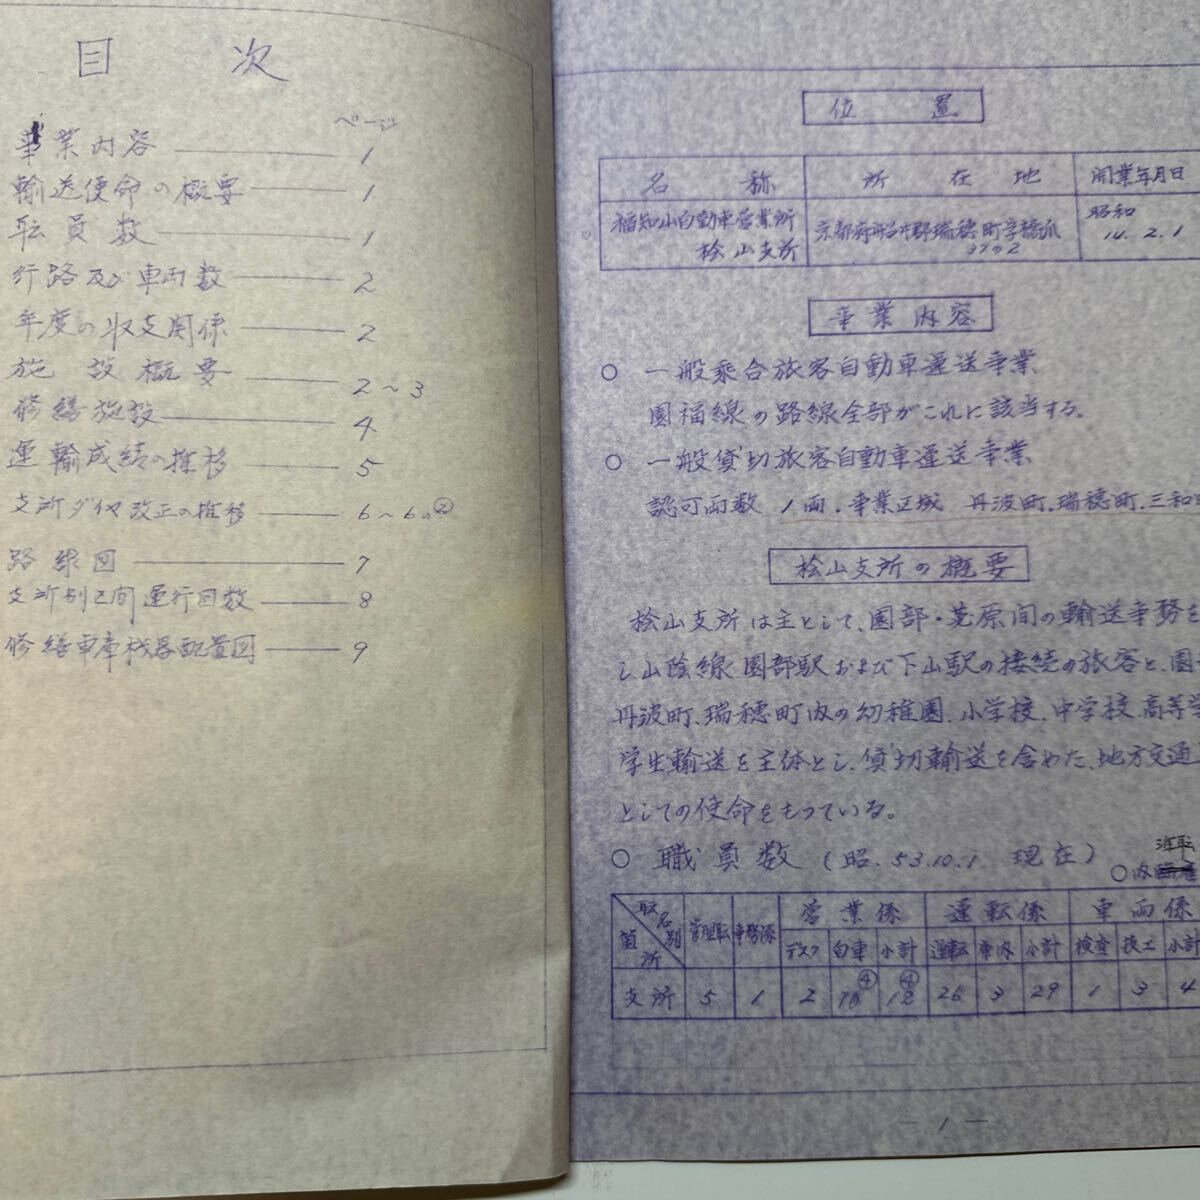 目次
ページ
事業内容 1
輸送使命の概要 1
職員数 1
行路及び車両数 2
年度の収支関係 2
施設概要 2～3
修繕施設 4
運輸成績の推移 5
支所ダイヤ改正の推移 6～6の②
路線図 7
支所別区間運行回数 8
修繕車庫機器配置図 9
位置
名称 所在地 開業年月日
福知山自動車営業所 京都府船井郡瑞穂町字橋爪 昭和
桧山支所 37の2 14.2.1
事業内容
○ 一般乗合旅客自動車運送事業
園福線の路線全部がこれに該当する。
○ 一般貸切旅客自動車運送事業
認可両数 1両.事業区域 丹波町.瑞穂町.三和
桧山支所の概要
桧山支所は主として、園部・菟原間の輸送事務を
し、山陰線園部駅および下山駅の接続の旅客と、園
丹波町、瑞穂町内の幼稚園.小学校.中学校.高等学
学生輸送を主体とし、貸切輸送を含めた、地方交通
としての使命をもっている。
○ 職員数(昭.53.10.1 現在)
運転
○内
職名別 管理職 事務係 営業係 運転係 車両係
箇所 デスク 自車 小計 運転 車内 小計 検査 技工 小計
④ ④
支所 5 1 2 10 12 26 3 29 1 3 4
— 1 —